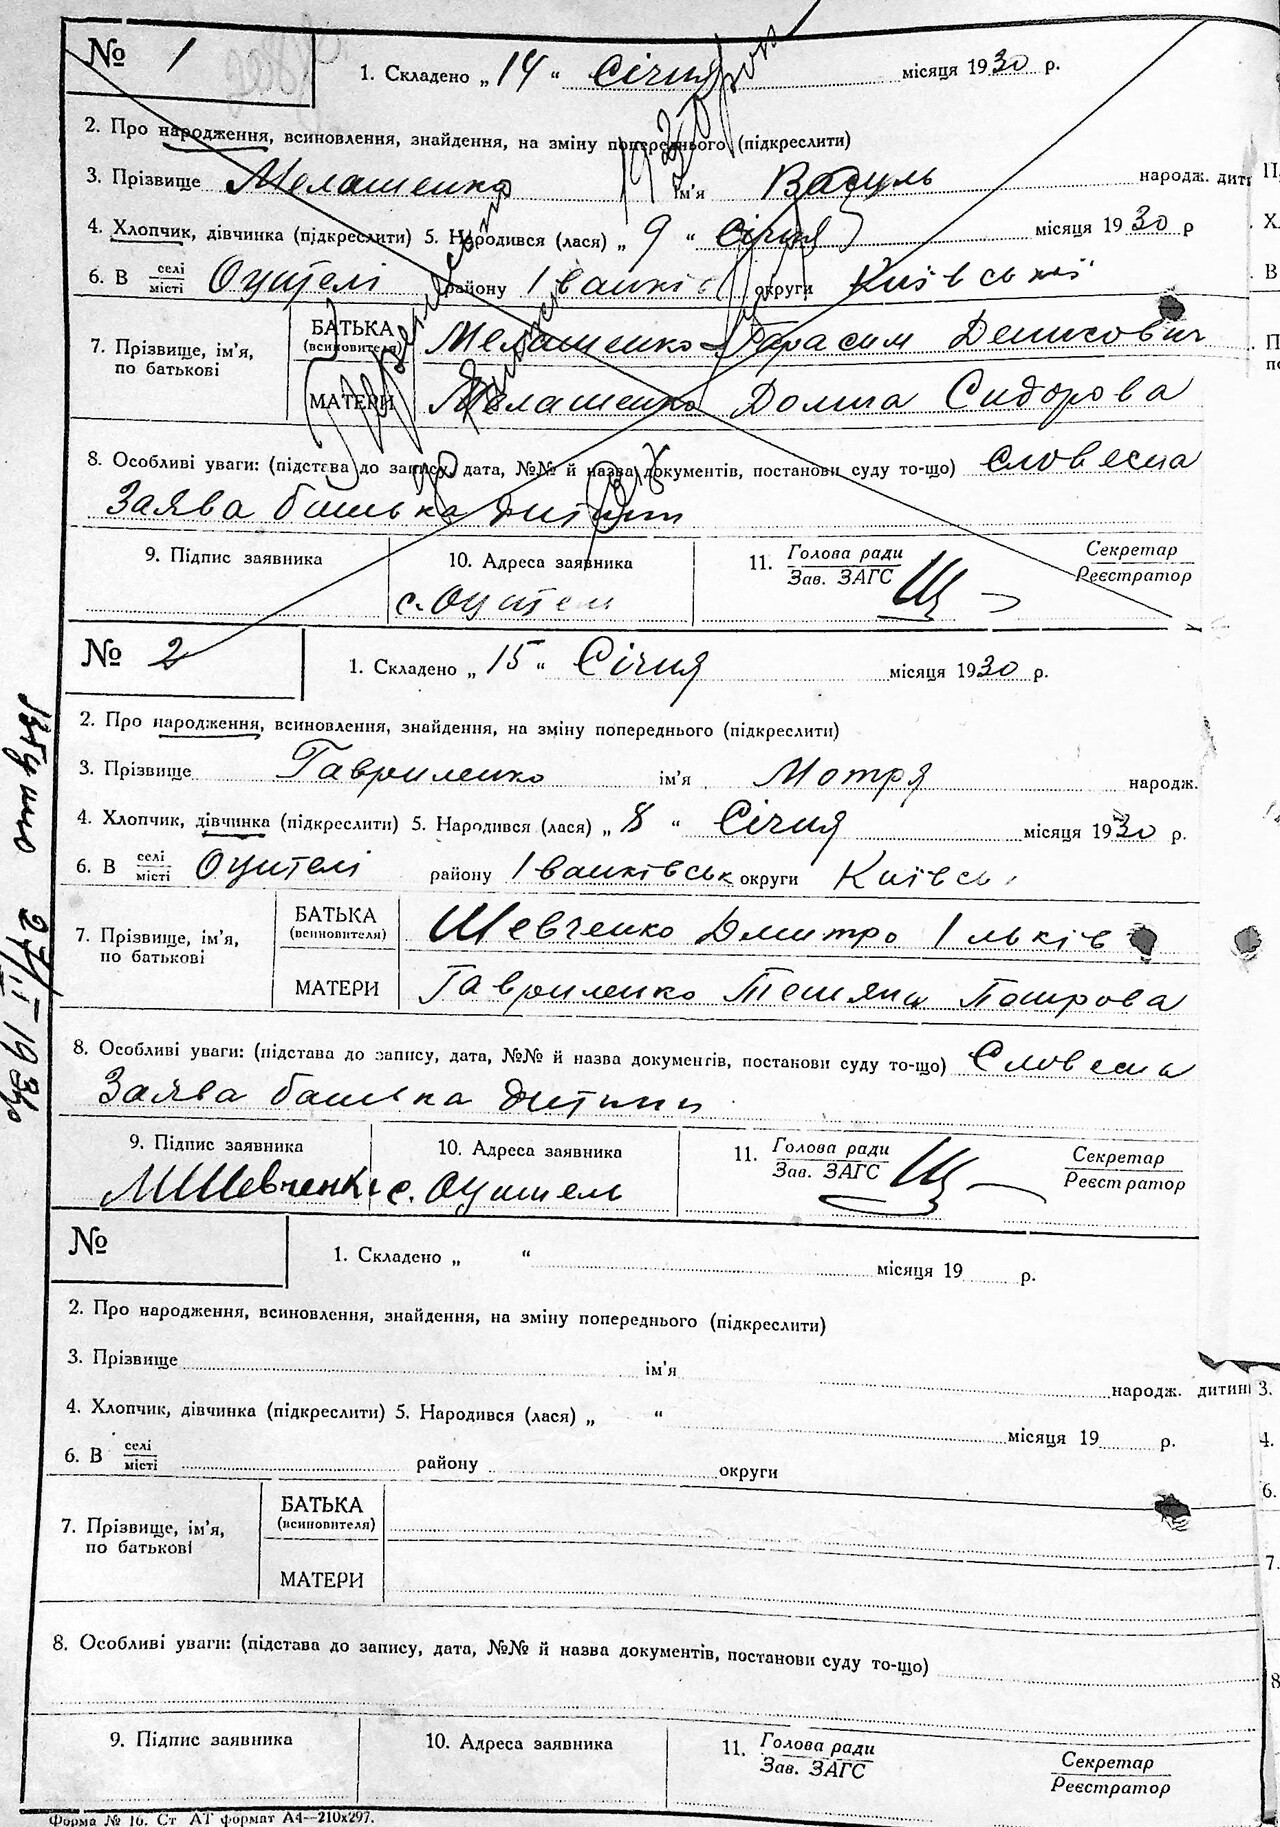 № 1
1. Складено „ 14 “ Січня місяця 1930 р.
2. Про народження, всиновлення, знайдення, на зміну попереднього (підкреслити)
3. Прізвище Мелашенко ім'я Васуль народж. дит
4. Хлопчик, дівчинка (підкреслити) 5. Народився (лася) „ 9 “ Січня місяця 1930 р
6. В селі місті Оцителі району Іванків округи Київської
7. Прізвище, ім'я, по батькові
БАТЬКА (всиновителя) Мелашенко Гарасим Денисович
МАТЕРИ Мелашенко Домна Сидорова
8. Особливі уваги: (підстава до запису, дата, №№ й назва документів, постанови суду то-що) словесна
Заява батька дитини
9. Підпис заявника 10. Адреса заявника 11. Голова ради Зав. ЗАГС Секретар Реєстратор
с. Оцитель
1930 рок
№ 2
1. Складено „ 15 “ Січня місяця 1930 р.
2. Про народження, всиновлення, знайдення, на зміну попереднього (підкреслити)
3. Прізвище Гавриленко ім'я Мотря народж.
4. Хлопчик, дівчинка (підкреслити) 5. Народився (лася) „ 8 “ Січня місяця 1930 р.
6. В селі місті Оцителі району Іванківськ округи Київсь
7. Прізвище, ім'я, по батькові
БАТЬКА (всиновителя) Шевченко Дмитро Ільків
МАТЕРИ Гавриленко Тетяна Петрова
8. Особливі уваги: (підстава до запису, дата, №№ й назва документів, постанови суду то-що) Словесна
Заява батька дитини
9. Підпис заявника 10. Адреса заявника 11. Голова ради Зав. ЗАГС Секретар Реєстратор
Шевченко с. Оцитель
№
1. Складено „ “ місяця 19 р.
2. Про народження, всиновлення, знайдення, на зміну попереднього (підкреслити)
3. Прізвище ім'я народж. дитин
4. Хлопчик, дівчинка (підкреслити) 5. Народився (лася) „ “ місяця 19 р.
6. В селі місті району округи
7. Прізвище, ім'я, по батькові
БАТЬКА (всиновителя)
МАТЕРИ
8. Особливі уваги: (підстава до запису, дата, №№ й назва документів, постанови суду то-що)
9. Підпис заявника 10. Адреса заявника 11. Голова ради Зав. ЗАГС Секретар Реєстратор
Форма № 16. Ст АТ формат А4—210х297.